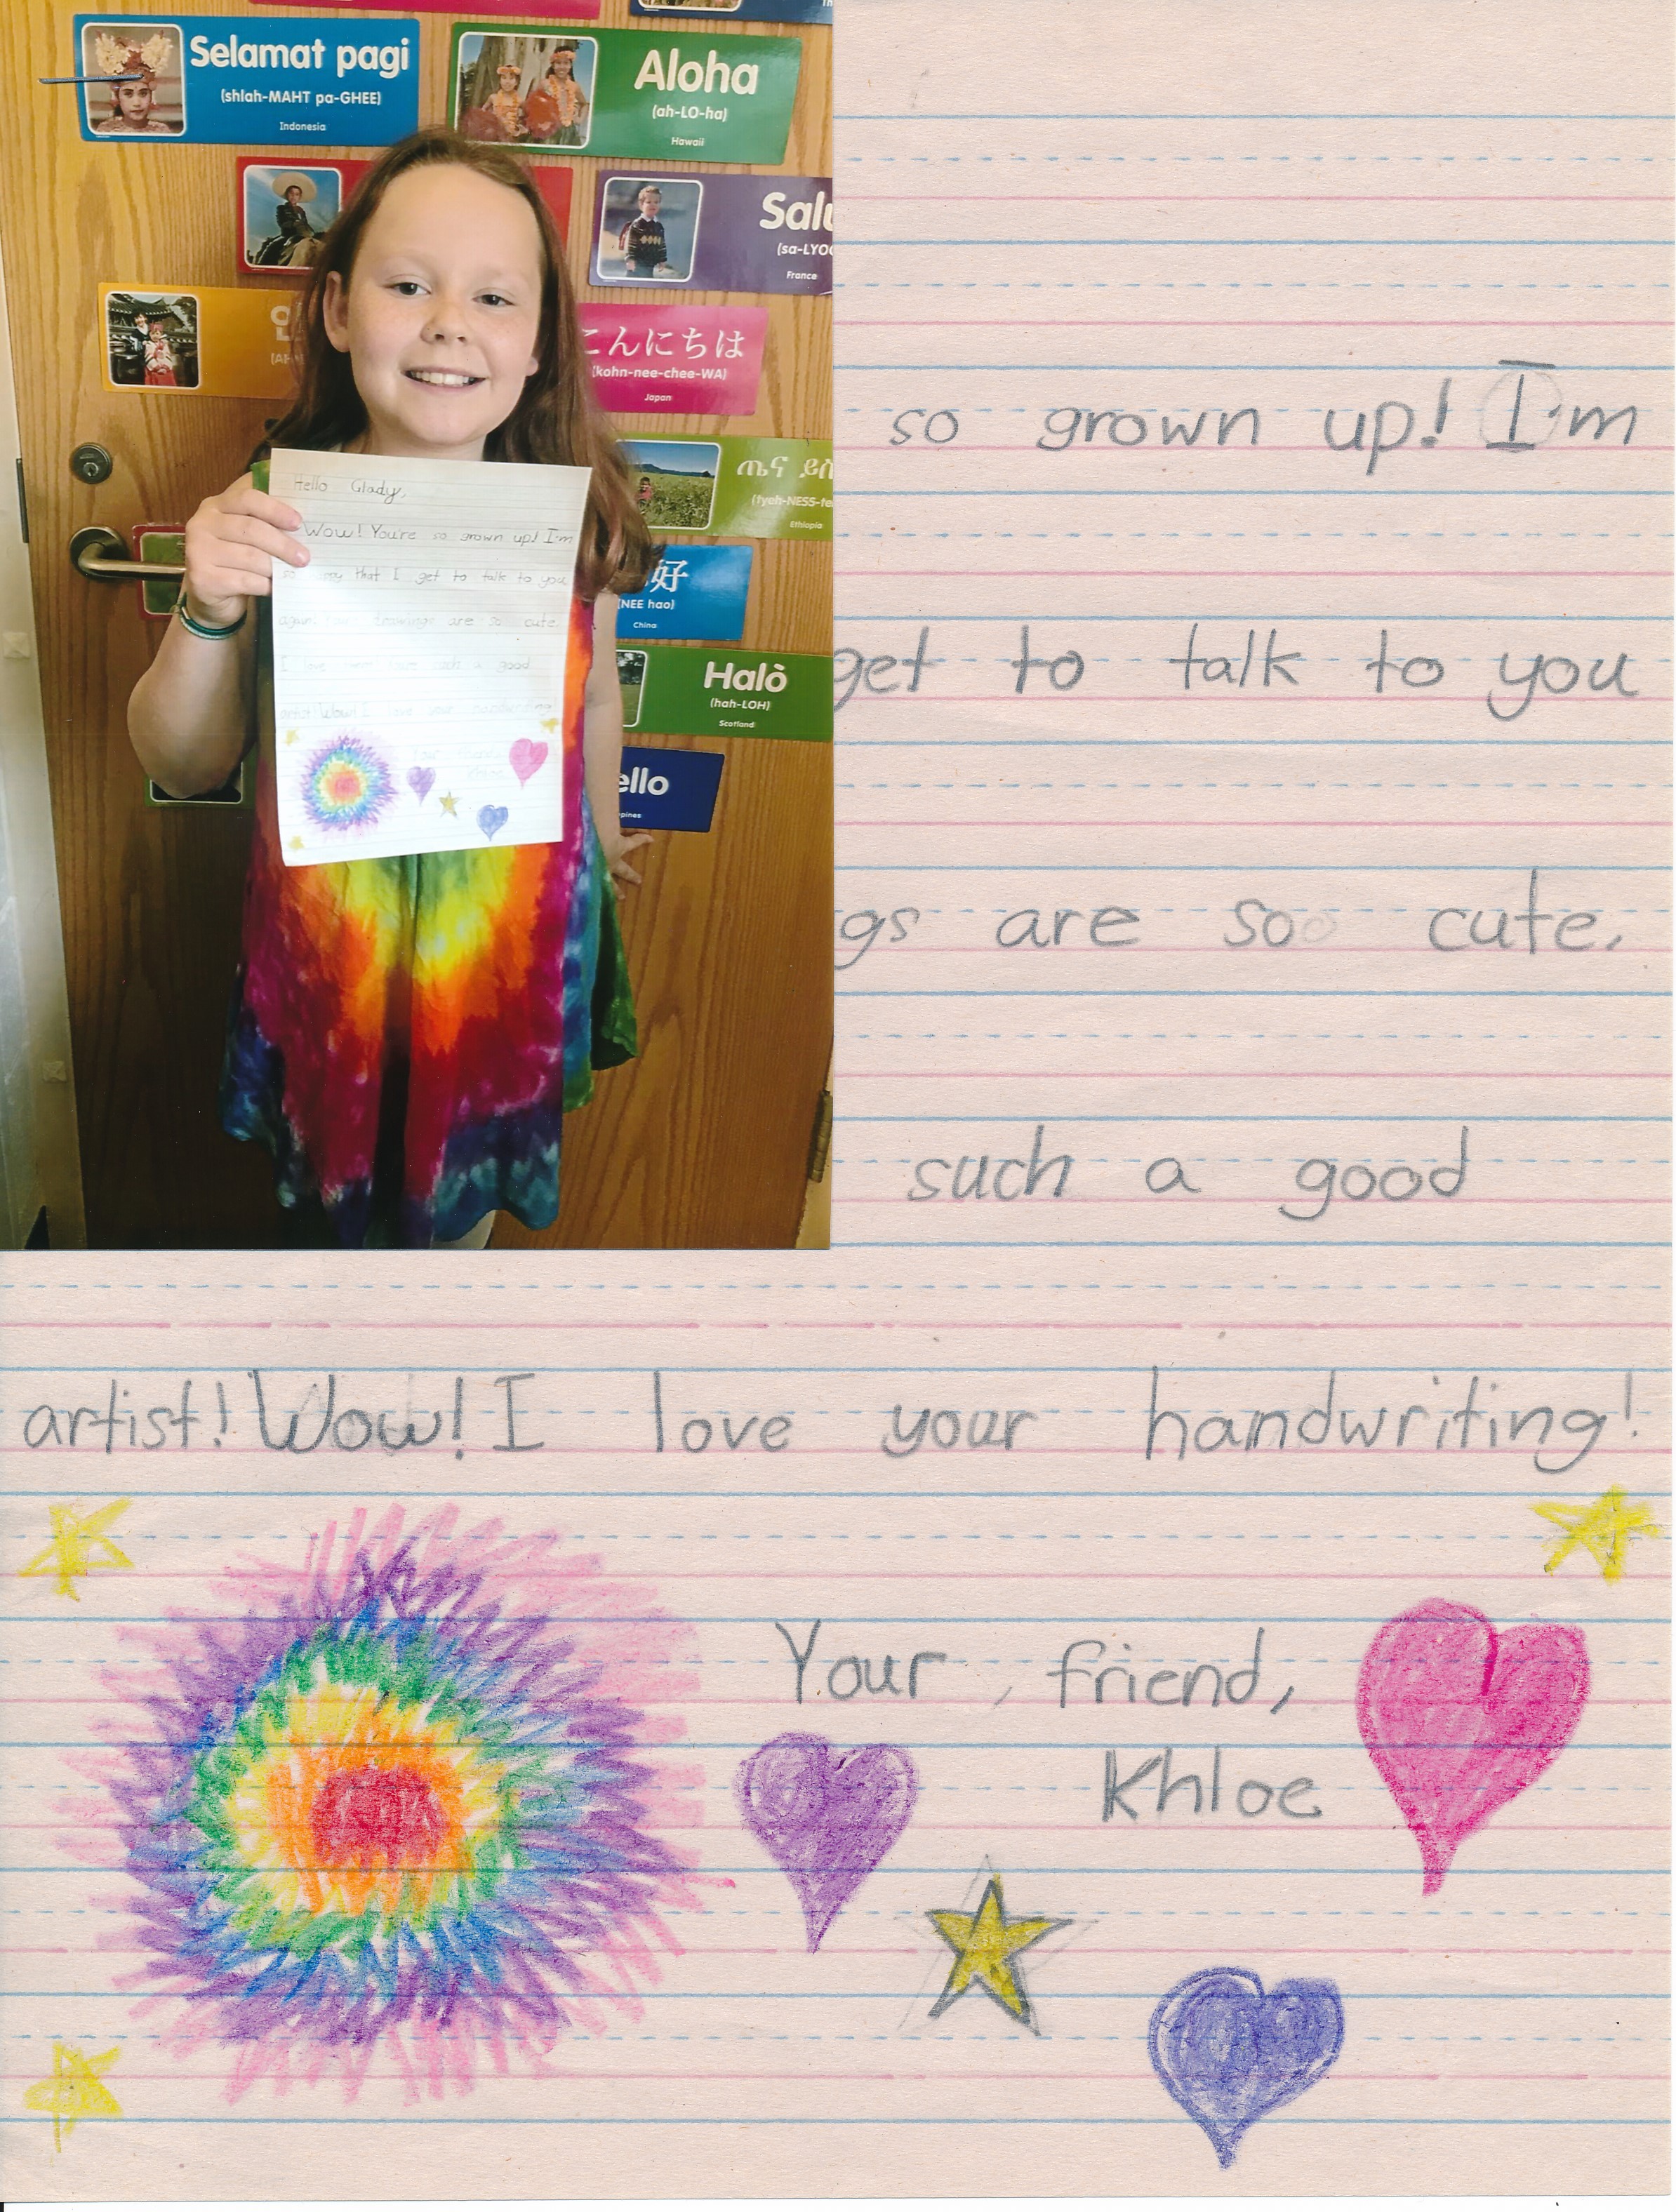 Selamat pagi
(shlah-MAHT pa-GHEE)
Indonesia
Aloha
(ah-LO-ha)
Hawaii
Salu
(sa-LYOO
France
안
(AH
こんにちは
(kohn-nee-chee-WA)
Japan
ጤና ይስ
(tyeh-NESS-te
Ethiopia
好
(NEE hao)
China
Halò
(hah-LOH)
Scotland
ello
ppines
Hello Glady,
Wow! You're so grown up! I'm
so happy that I get to talk to you
again! Your drawings are so cute.
I love your such a good
artist! Wow! I love your handwriting!
Your friend,
Khloe
so grown up! I'm
get to talk to you
gs are so cute.
such a good
artist! Wow! I love your handwriting!
Your , friend,
Khloe